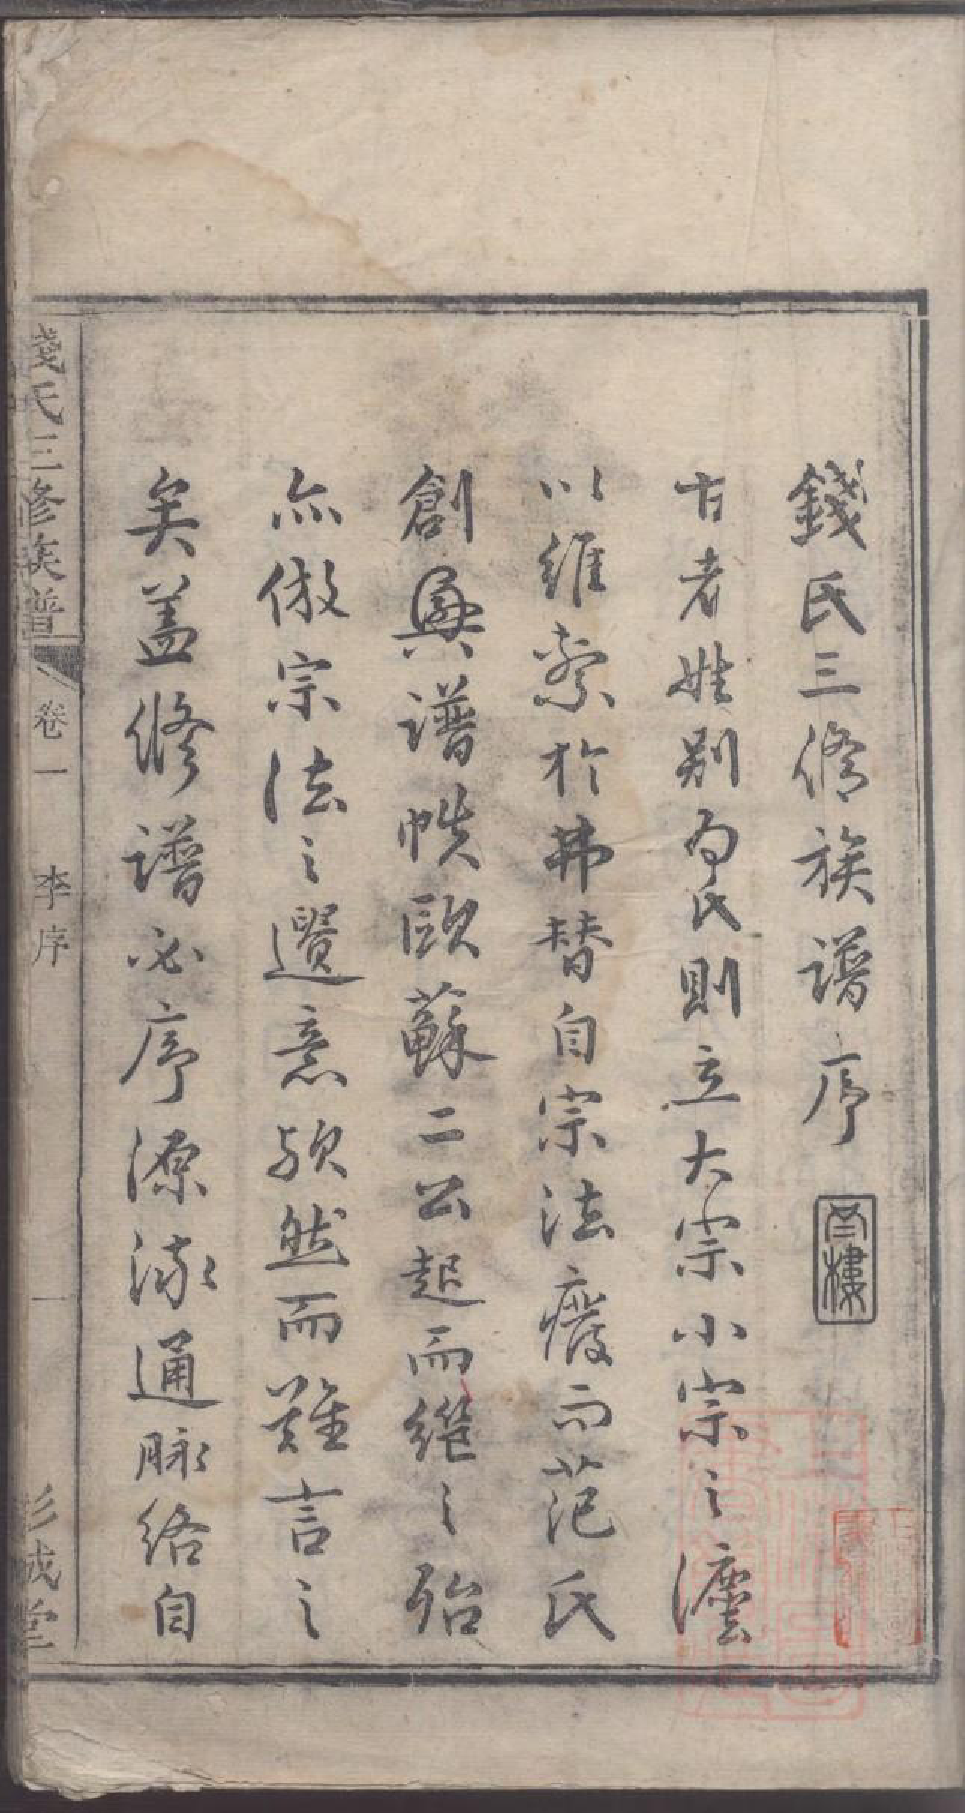 錢氏三修族譜序
古者姓別為氏則立大宗小宗之灋
以維繫於弗替自宗法廢而范氏
創輿譜帙歐蘇二公起而繼之殆
亦倣宗法之遺意歟然而難言之
矣盖修譜必序源流通脉絡自
錢氏三修族譜
卷一
李序
一
彭城堂